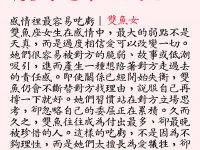 感情裡最容易吃虧｜雙魚女
雙魚座女生在感情中，最大的弱點不是
天真，而是過度相信愛可以改變一切。
她們很容易被對方的脆弱、故事或低潮
吸引，進而產生一種想陪著對方走過去
的責任感。即使關係已經開始失衡，雙
魚仍會不斷替對方找理由，說服自己再
撐一下就好。她們習慣站在對方立場思
考，卻忽略自己的委屈正在累積。久而
久之，雙魚往往成為付出最多、卻最晚
被珍惜的人。這樣的吃虧，不是因為不
夠理性，而是她們太擅長為愛犧牲，卻